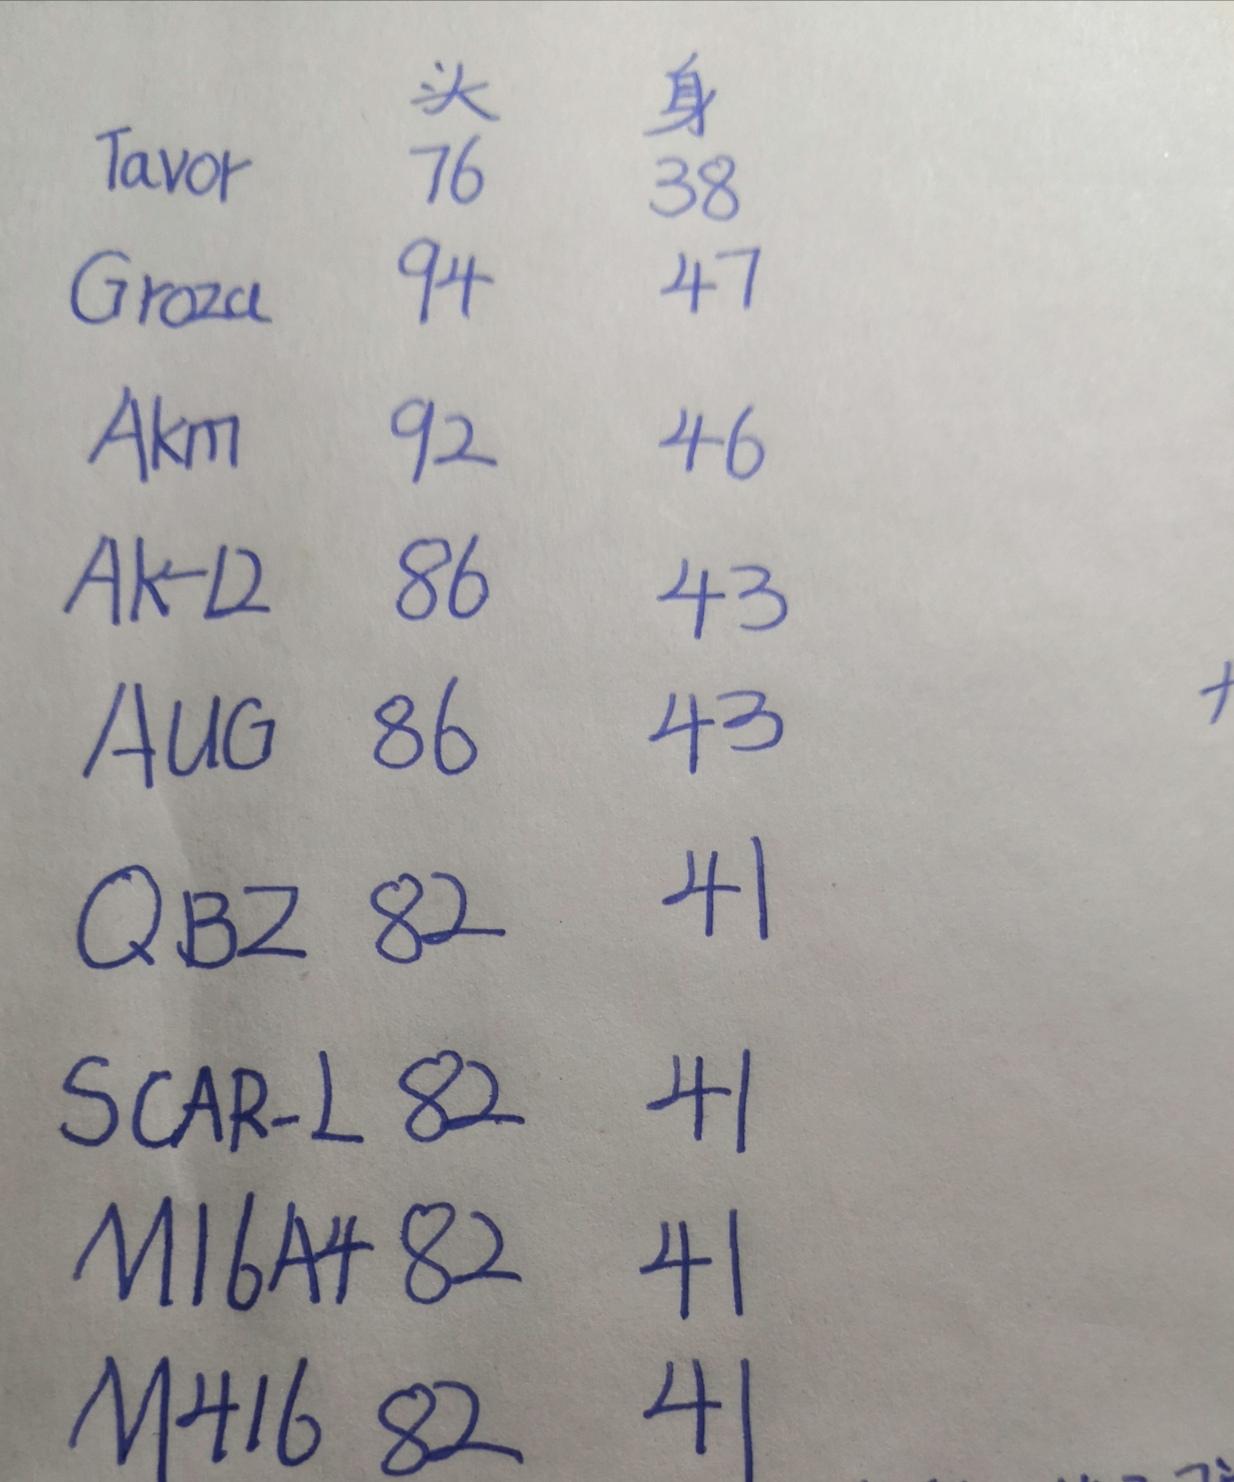 头 身
Tavor 76 38
Groza 94 47
Akm 92 46
Ak-12 86 43
AUG 86 43
QBZ 82 41
SCAR-L 82 41
M16A4 82 41
M416 82 41